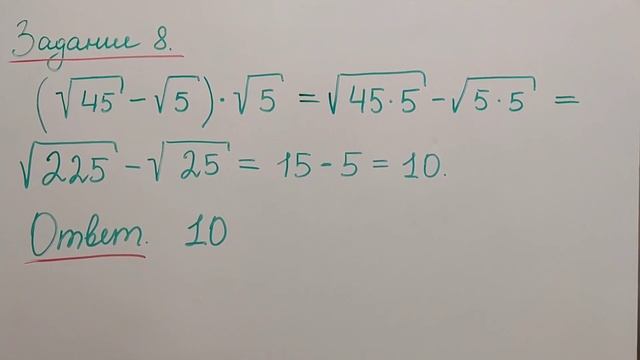 Задание 8.
(√45 - √5) · √5 = √45·5 - √5·5 =
√225 - √25 = 15 - 5 = 10.
Ответ. 10